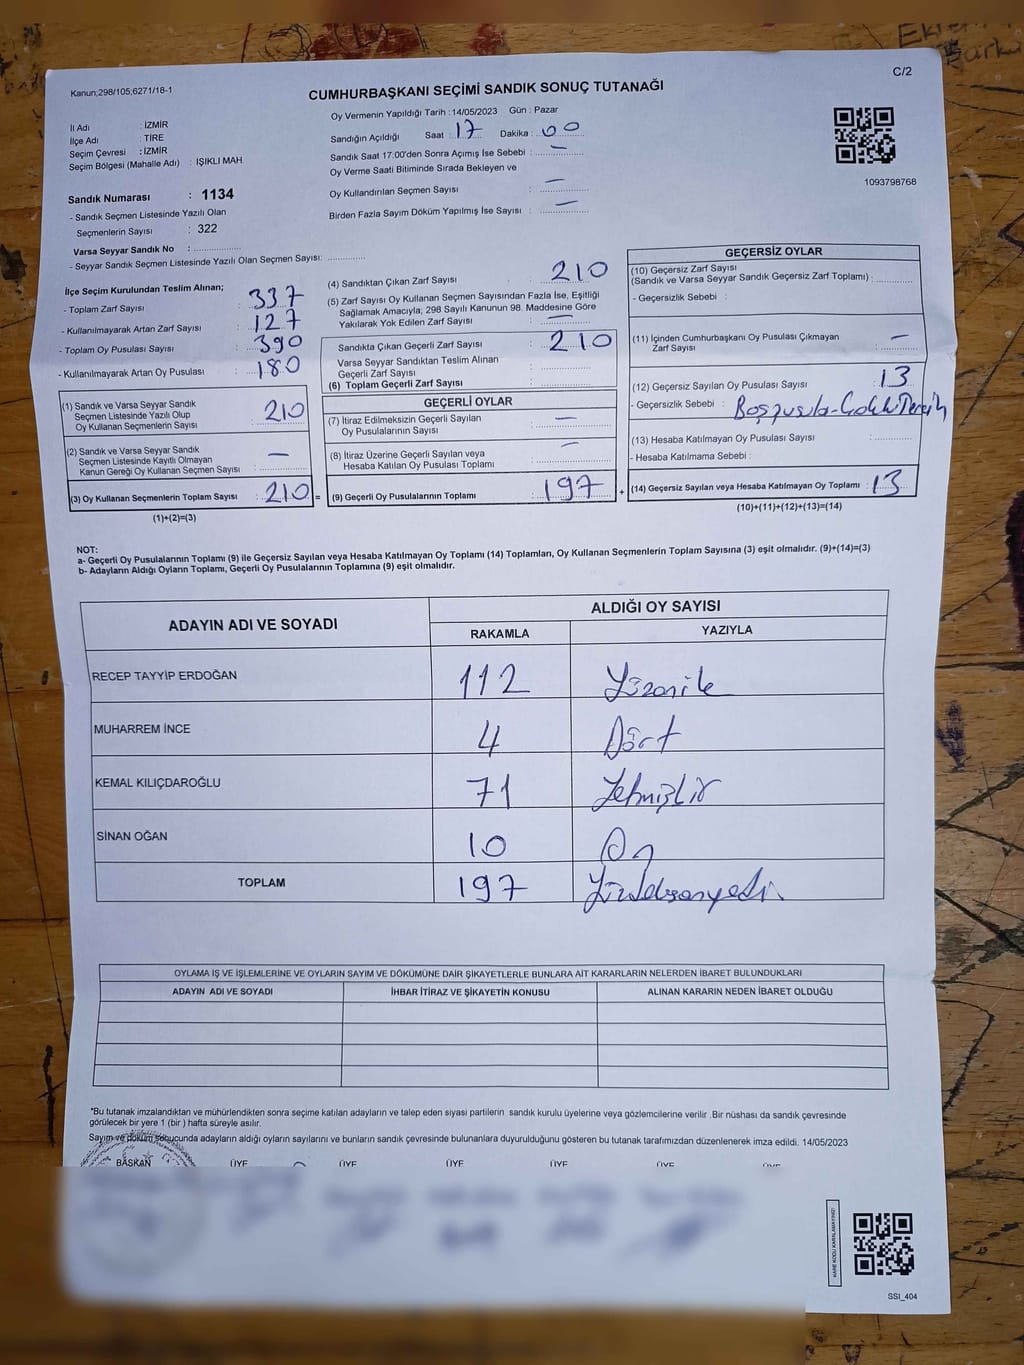 C/2
Kanun;298/105;6271/18-1
CUMHURBAŞKANI SEÇİMİ SANDIK SONUÇ TUTANAĞI
İl Adı : İZMİR
İlçe Adı : TİRE
Seçim Çevresi : İZMİR
Seçim Bölgesi (Mahalle Adı) : IŞIKLI MAH.
Sandık Numarası : 1134
- Sandık Seçmen Listesinde Yazılı Olan
Seçmenlerin Sayısı : 322
Varsa Seyyar Sandık No :
- Seyyar Sandık Seçmen Listesinde Yazılı Olan Seçmen Sayısı:
Oy Vermenin Yapıldığı Tarih : 14/05/2023 Gün : Pazar
Sandığın Açıldığı Saat : 17 Dakika : 00
Sandık Saat 17:00'den Sonra Açımış İse Sebebi : —
Oy Verme Saati Bitiminde Sırada Bekleyen ve
Oy Kullandırılan Seçmen Sayısı : —
Birden Fazla Sayım Döküm Yapılmış İse Sayısı : —
1093798768
İlçe Seçim Kurulundan Teslim Alınan;
- Toplam Zarf Sayısı : 337
- Kullanılmayarak Artan Zarf Sayısı : 127
- Toplam Oy Pusulası Sayısı : 390
- Kullanılmayarak Artan Oy Pusulası : 180
(1) Sandık ve Varsa Seyyar Sandık
Seçmen Listesinde Yazılı Olup
Oy Kullanan Seçmenlerin Sayısı : 210
(2) Sandık ve Varsa Seyyar Sandık
Seçmen Listesinde Kayıtlı Olmayan
Kanun Gereği Oy Kullanan Seçmen Sayısı : —
(3) Oy Kullanan Seçmenlerin Toplam Sayısı : 210 =
(1)+(2)=(3)
(4) Sandıktan Çıkan Zarf Sayısı : 210
(5) Zarf Sayısı Oy Kullanan Seçmen Sayısından Fazla İse, Eşitliği
Sağlamak Amacıyla; 298 Sayılı Kanunun 98. Maddesine Göre
Yakılarak Yok Edilen Zarf Sayısı : —
Sandıkta Çıkan Geçerli Zarf Sayısı : 210
Varsa Seyyar Sandıktan Teslim Alınan
Geçerli Zarf Sayısı :
(6) Toplam Geçerli Zarf Sayısı :
GEÇERLİ OYLAR
(7) İtiraz Edilmeksizin Geçerli Sayılan
Oy Pusulalarının Sayısı : —
(8) İtiraz Üzerine Geçerli Sayılan veya
Hesaba Katılan Oy Pusulası Toplamı : —
(9) Geçerli Oy Pusulalarının Toplamı : 197 +
GEÇERSİZ OYLAR
(10) Geçersiz Zarf Sayısı
(Sandık ve Varsa Seyyar Sandık Geçersiz Zarf Toplamı) :
- Geçersizlik Sebebi :
(11) İçinden Cumhurbaşkanı Oy Pusulası Çıkmayan
Zarf Sayısı : —
(12) Geçersiz Sayılan Oy Pusulası Sayısı : 13
- Geçersizlik Sebebi : Boş pusula - Çoklu Tercih
(13) Hesaba Katılmayan Oy Pusulası Sayısı :
- Hesaba Katılmama Sebebi :
(14) Geçersiz Sayılan veya Hesaba Katılmayan Oy Toplamı : 13
(10)+(11)+(12)+(13)=(14)
NOT:
a- Geçerli Oy Pusulalarının Toplamı (9) ile Geçersiz Sayılan veya Hesaba Katılmayan Oy Toplamı (14) Toplamları, Oy Kullanan Seçmenlerin Toplam Sayısına (3) eşit olmalıdır. (9)+(14)=(3)
b- Adayların Aldığı Oyların Toplamı, Geçerli Oy Pusulalarının Toplamına (9) eşit olmalıdır.
ADAYIN ADI VE SOYADI
ALDIĞI OY SAYISI
RAKAMLA YAZIYLA
RECEP TAYYİP ERDOĞAN 112 Yüzoniki
MUHARREM İNCE 4 Dört
KEMAL KILIÇDAROĞLU 71 Yetmişbir
SİNAN OĞAN 10 On
TOPLAM 197 Yüzdoksanyedi
OYLAMA İŞ VE İŞLEMLERİNE VE OYLARIN SAYIM VE DÖKÜMÜNE DAİR ŞİKAYETLERLE BUNLARA AİT KARARLARIN NELERDEN İBARET BULUNDUKLARI
ADAYIN ADI VE SOYADI İHBAR İTİRAZ VE ŞİKAYETİN KONUSU ALINAN KARARIN NEDEN İBARET OLDUĞU
"Bu tutanak imzalandıktan ve mühürlendikten sonra seçime katılan adayların ve talep eden siyasi partilerin sandık kurulu üyelerine veya gözlemcilerine verilir .Bir nüshası da sandık çevresinde
görülecek bir yere 1 (bir ) hafta süreyle asılır.
Sayım ve döküm sonucunda adayların aldığı oyların sayılarını ve bunların sandık çevresinde bulunanlara duyurulduğunu gösteren bu tutanak tarafımızdan düzenlenerek imza edildi. 14/05/2023
BAŞKAN ÜYE ÜYE ÜYE ÜYE ÜYE ÜYE
KARE KODU KARALAMAYINIZ!
SSI_404